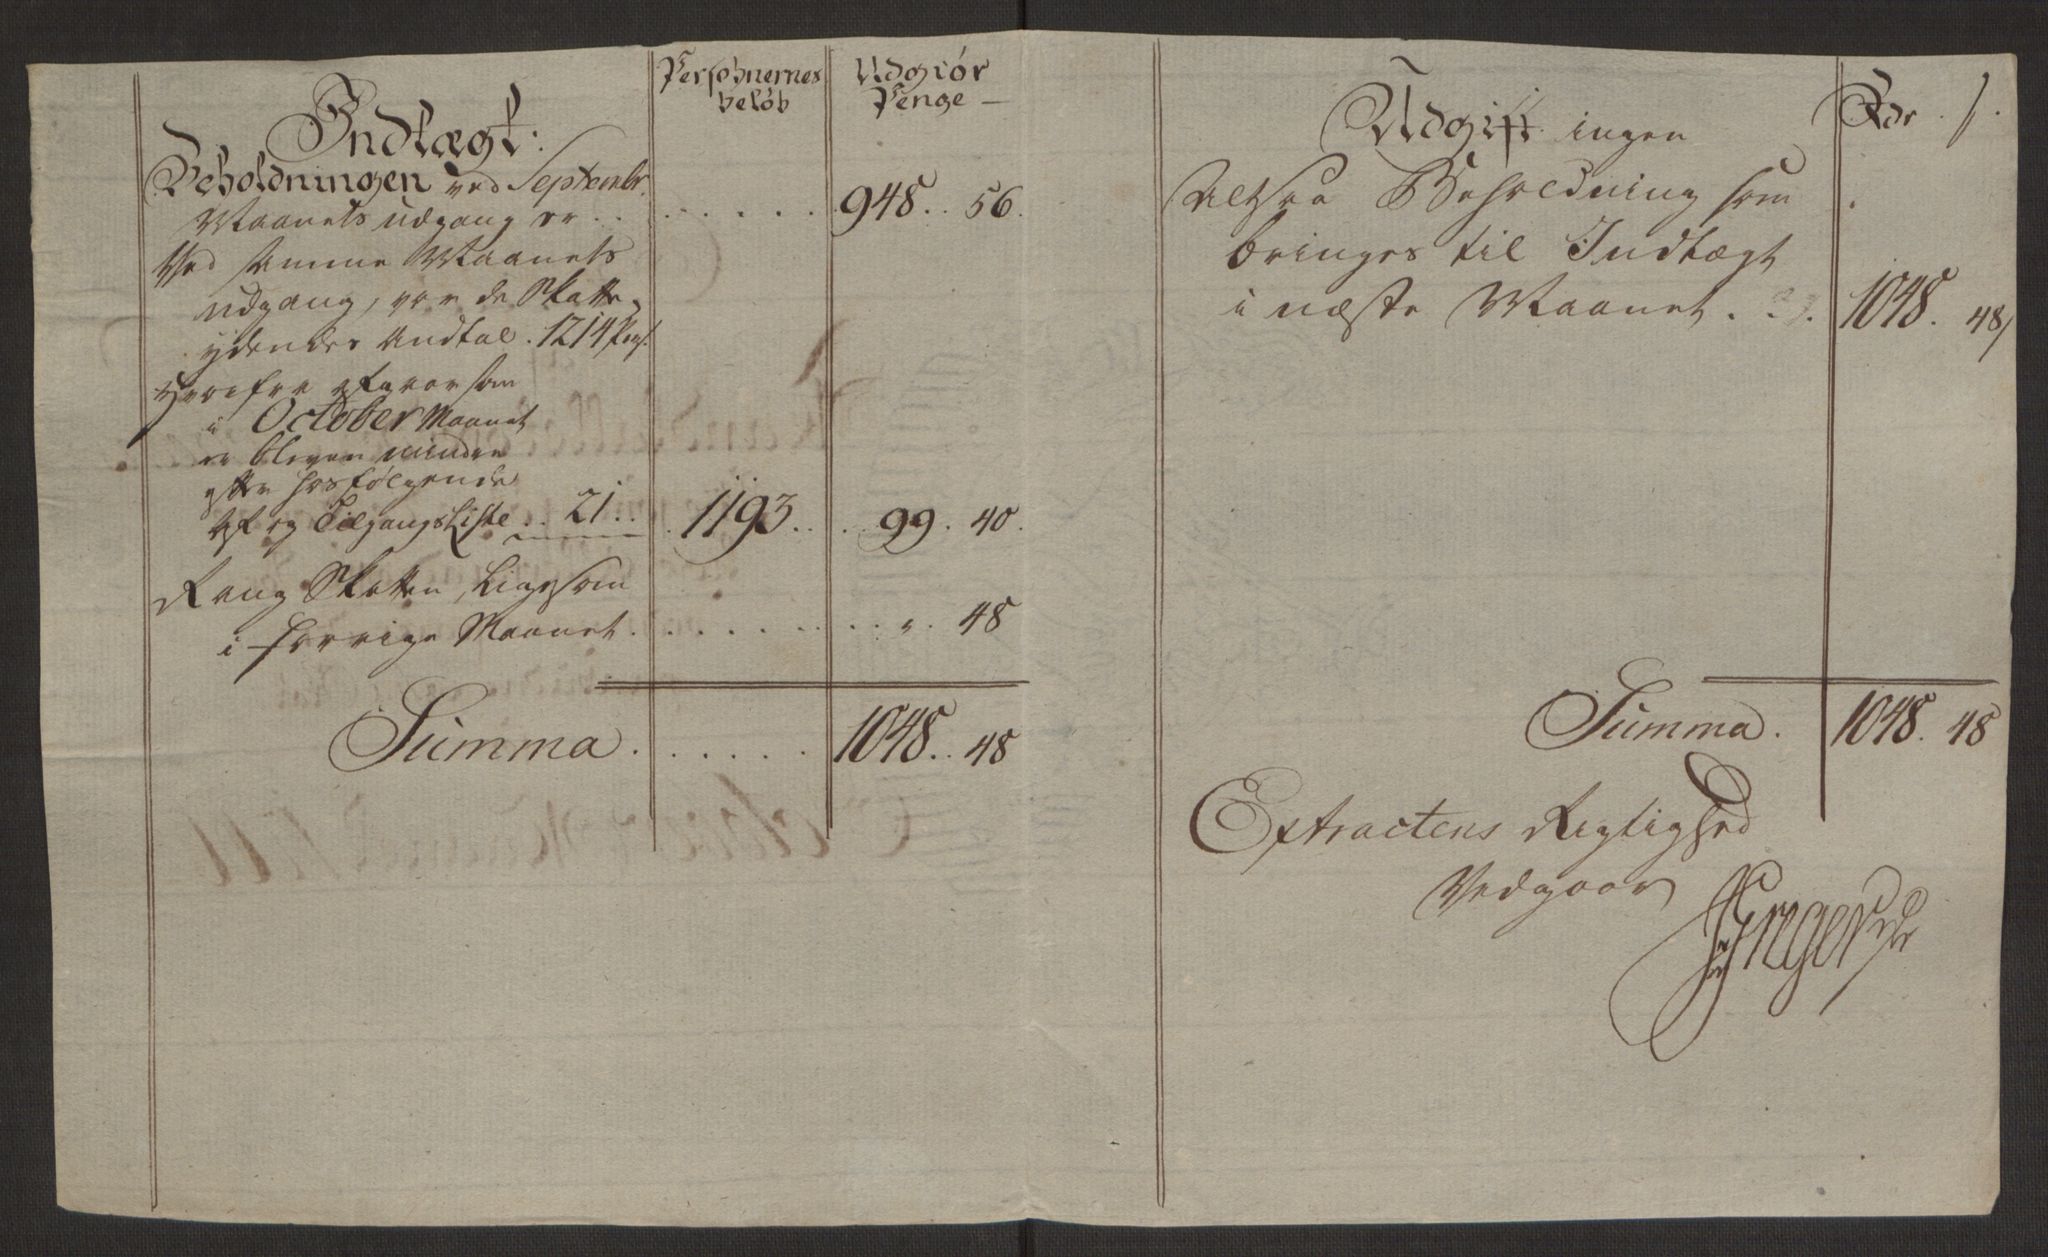 Indtægt:
Persohnernes
beløb
Udgiør
Penge —
Beholdningen ved Septembr.
Maanets udgang er . . . . . . . . 948 .. 56.
Ved samme Maanets
udgang, var de Skatte-
ydendes Andtal . 1214 Pers.
Herefra afgaaer som
i October Maanet
er bleven mindre
efter hosfølgende
Af og TilgangsListe .. 21 .. 1193 .. .. 99 . 40.
Rang Skatten, Ligesom
i forrige Maanet . . . . . . . . . " . 48
Summa . . . . . . . 1048 .. 48
Udgift ingen
Rdr . ſ.
Altsaa Beholdning som
bringes til Indtægt
i næste Maanet . . . 1048 . 48ſ
Summa . 1048 . 48
Extractens Rigtighed
Vedgaaer